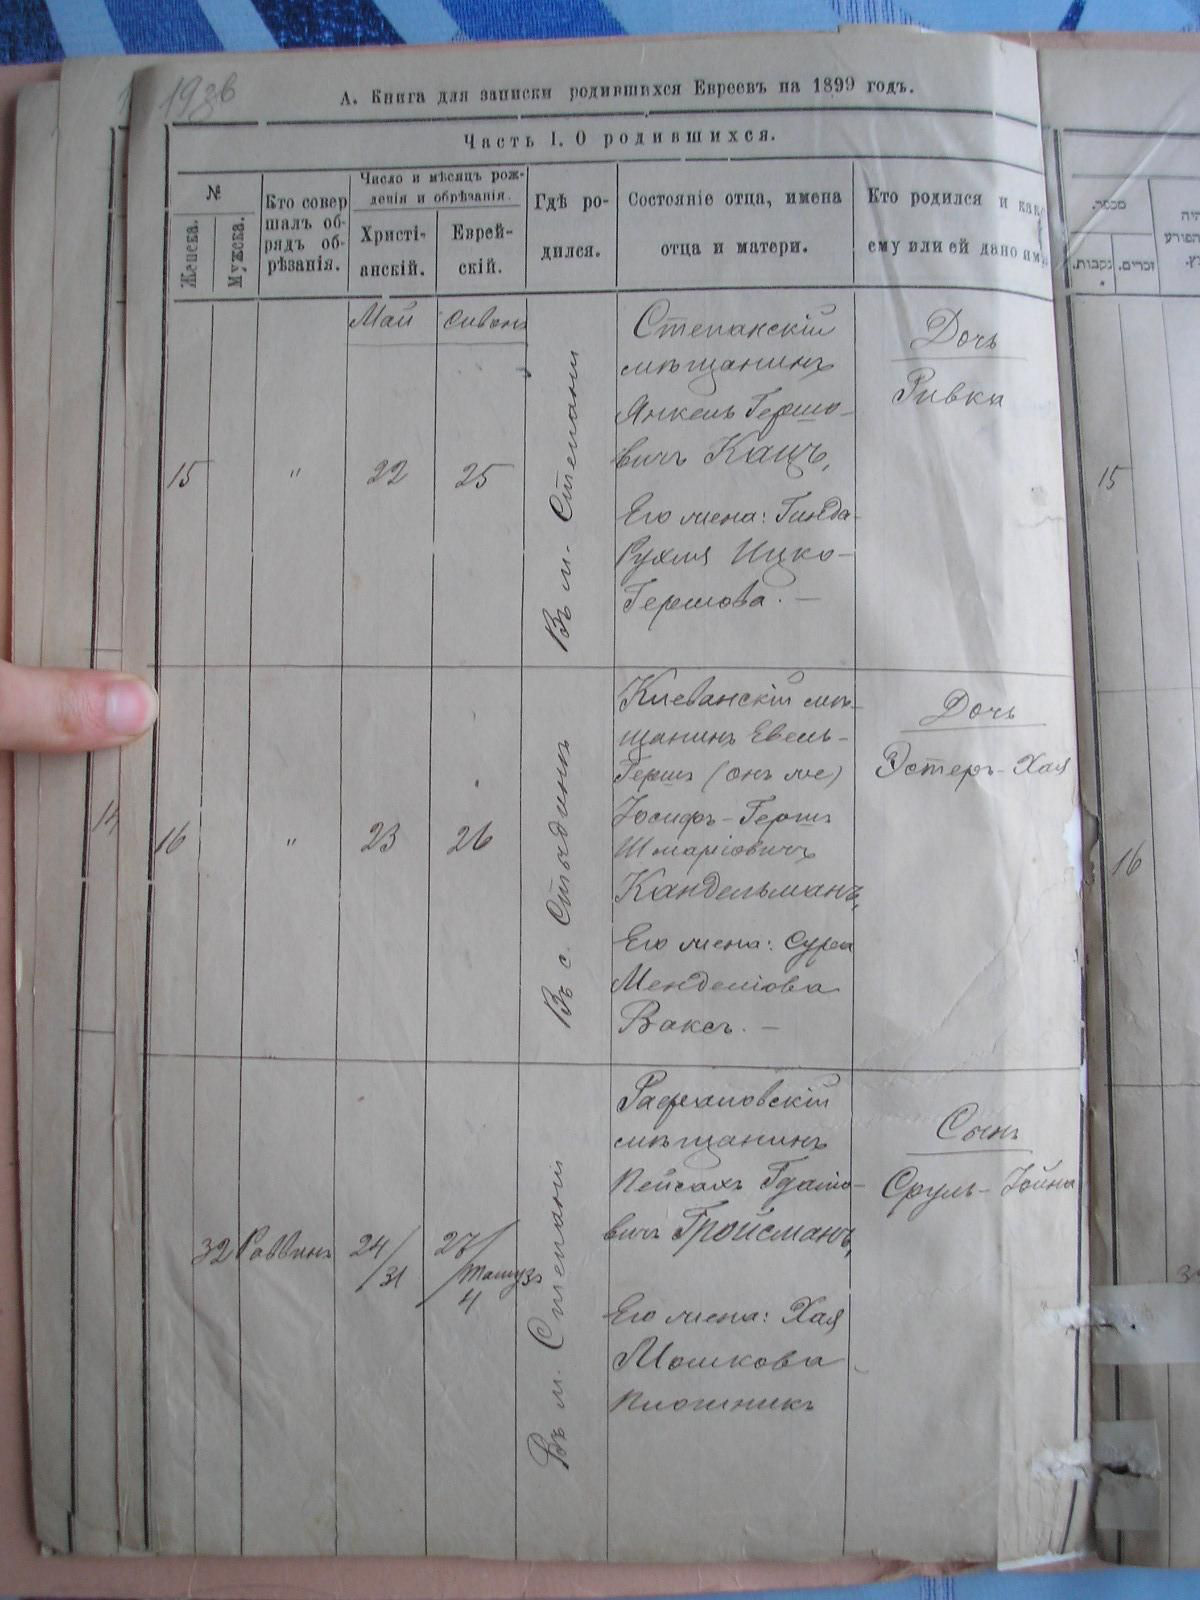 193в
А. Книга для записки родившихся Евреевъ на 1899 годъ.
Часть I. О родившихся.
№
Женска.
Мужска.
Кто совер
шалъ об-
рядъ об-
рѣзанія.
Число и мѣсяцъ рож-
денія и обрѣзанія.
Христі-
анскій.
Еврей-
скій.
Гдѣ ро-
дился.
Состояніе отца, имена
отца и матери.
Кто родился и как
ему или ей дано имя
מספר.
נקבות.
זכרים.
Май
Сивон
15
"
22
25
Въ м. Степани
Степанскій
мѣщанинъ
Янкель Гершо-
вичъ Кацъ,
Его жена: Гинда-
Рухля Ицко-
Гершова. —
Дочь
Ривка
15
14
16
"
23
26
Въ с. Стыдинъ
Клеванскій мѣ-
щанинъ Евель-
Гершъ (онъ же)
Іосифъ-Гершъ
Шмаріовичъ
Кандельманъ,
Его жена: Сура
Менделіова
Ваксъ. —
Дочь
Эстеръ-Хая
16
32
Раввинъ
24/
/31
27/
/Тамузъ
4
Въ м. Степани
Рафаловскій
мѣщанинъ
Пейсахъ Гдаліо-
вичъ Гройсманъ,
Его жена: Хая
Мошкова
Плотникъ
Сынъ
Сруль-Іойна